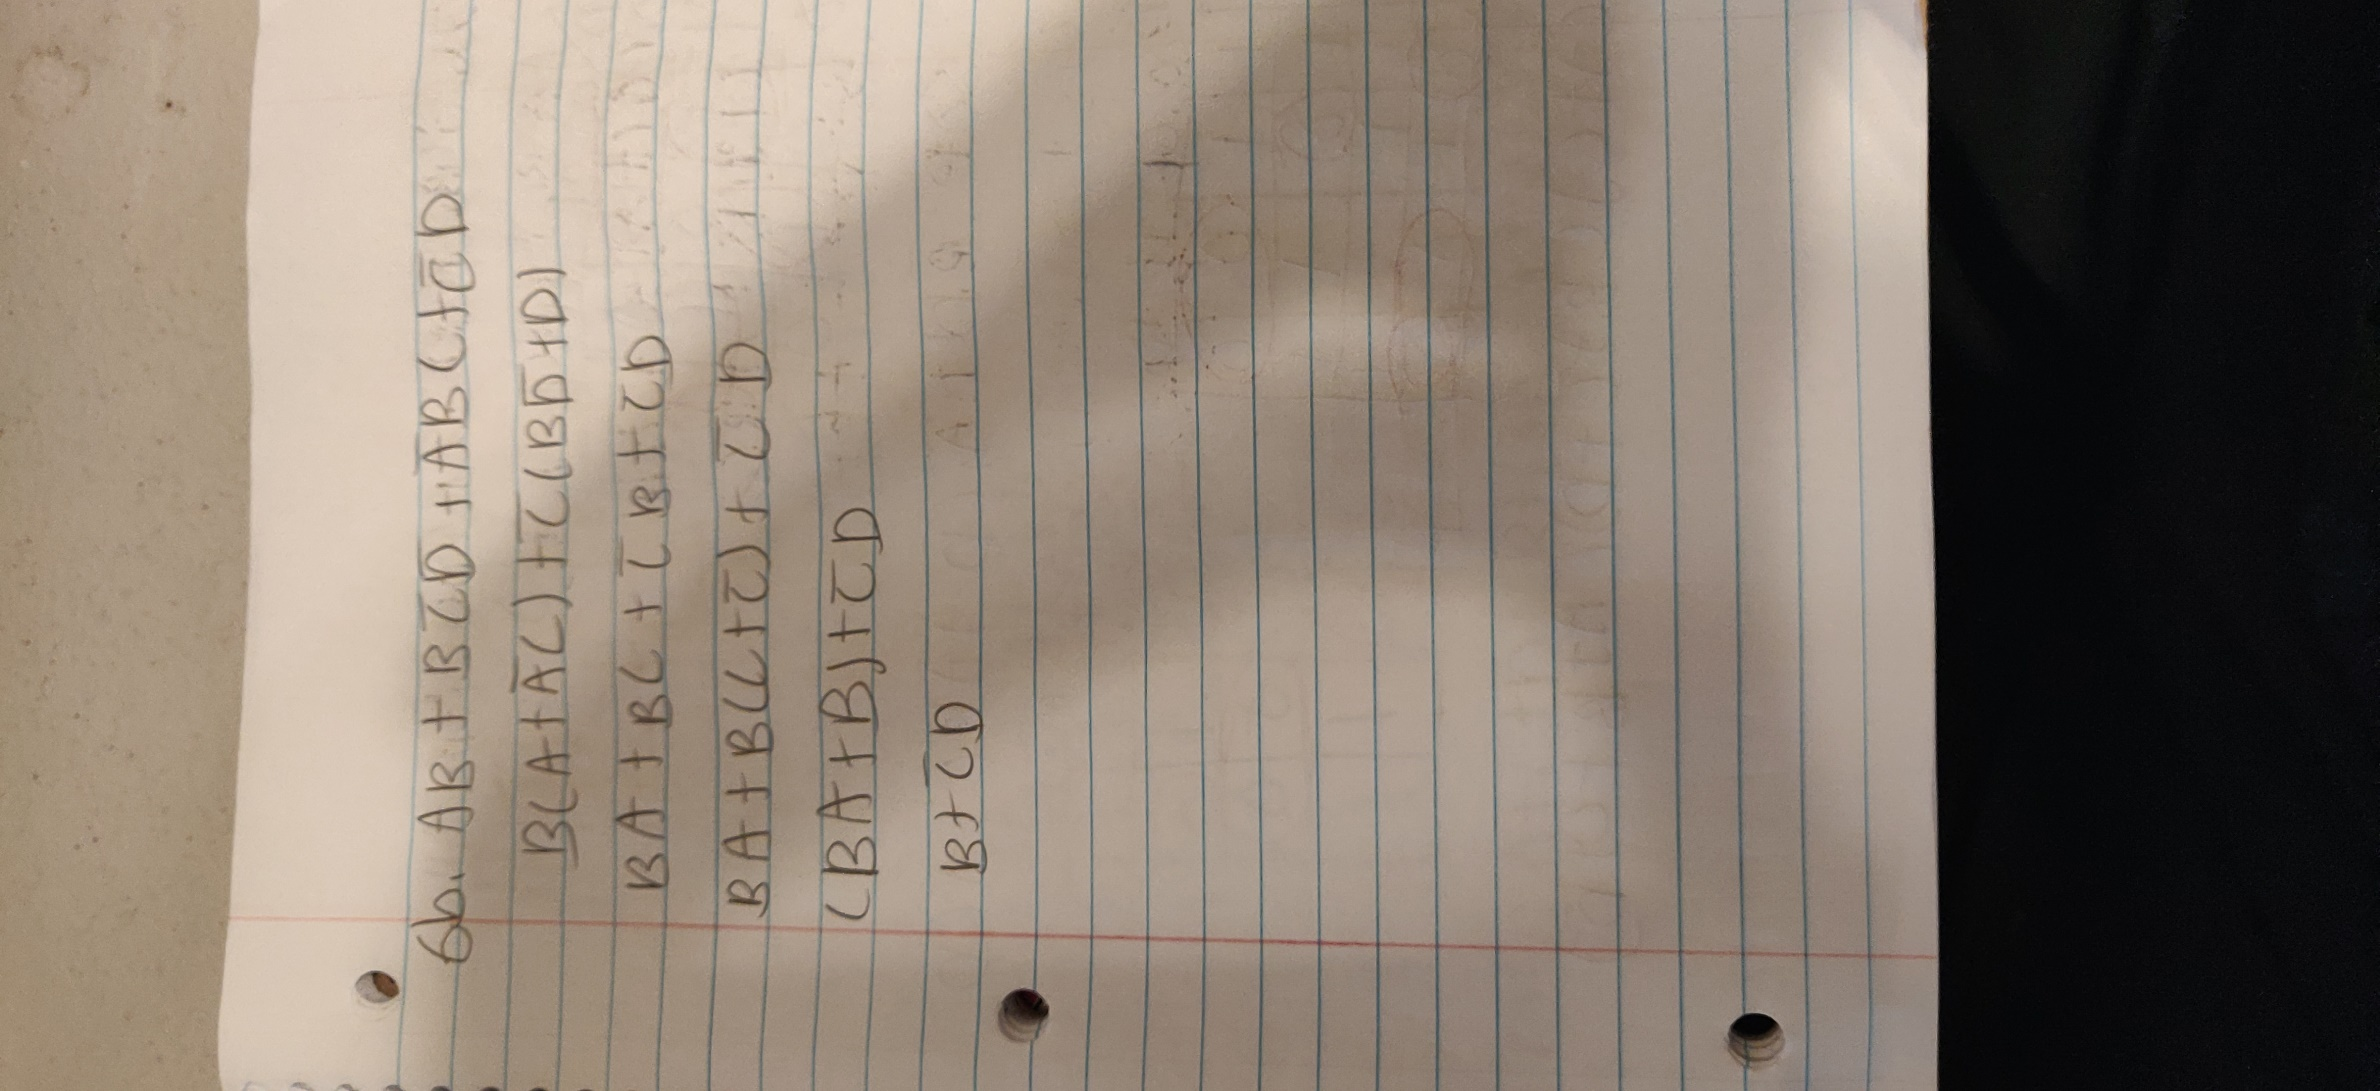 6b. AB + BC̅D̅ + A̅BC + C̅D
B(A + A̅C) + C̅(BD̅ + D)
BA + BC + C̅B + C̅D
BA + B(C + C̅) + C̅D
(BA + B) + C̅D
B + C̅D